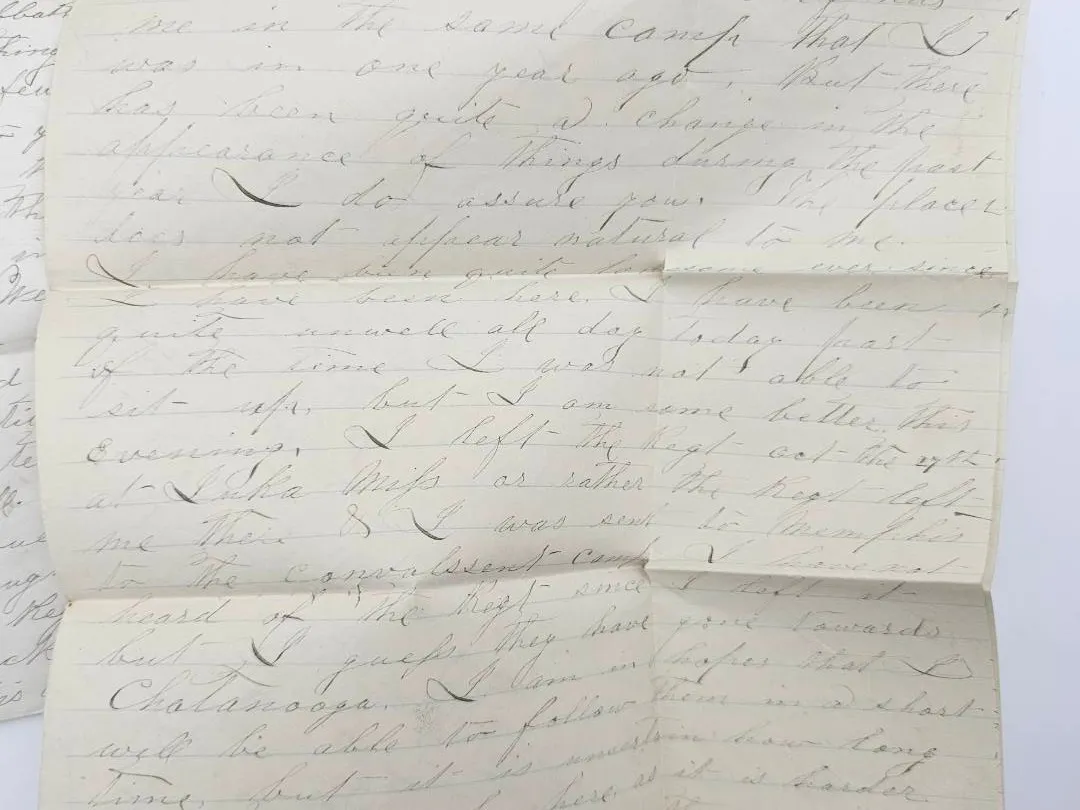 me in the same camp that I
was in one year ago. But there
has been quite a change in the
appearance of things during the past
year I do assure you. The place
does not appear natural to me.
I have been quite lonesome ever since
I have been here. I have been
quite unwell all day today part
of the time I was not able to
sit up, but I am some better this
Evening. I left the Regt oct the 27th
at Iuka Miss or rather the Regt left
me there & I was sent to Memphis
to the convalssent camp I have not
heard of the Regt since I left it
but I guess they have gone towards
Chatanooga. I am in hopes that I
will be able to follow them in a short
time, but it is uncertain how long
here as it is harder